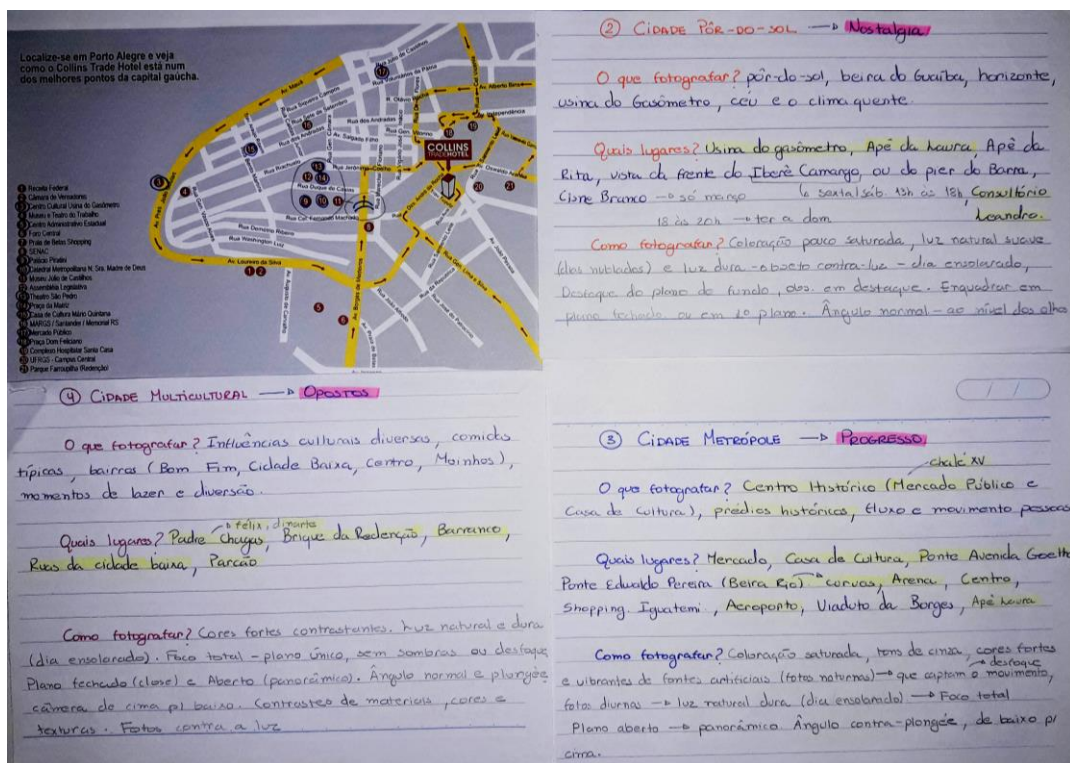 Localize-se em Porto Alegre e veja
como o Collins Trade Hotel está num
dos melhores pontos da capital gaúcha.
1 Receita Federal
2 Câmara de Vereadores
3 Centro Cultural Usina do Gasômetro
4 Museu e Teatro do Trabalho
5 Centro Administrativo Estadual
6 Foro Central
7 Praia de Belas Shopping
8 SENAC
9 Palácio Piratini
10 Catedral Metropolitana N. Sra. Madre de Deus
11 Museu Júlio de Castilhos
12 Assembléia Legislativa
13 Theatro São Pedro
14 Praça da Matriz
15 Casa de Cultura Mário Quintana
16 MARGS / Santander / Memorial RS
17 Mercado Público
18 Praça Dom Feliciano
19 Complexo Hospitalar Santa Casa
20 UFRGS - Campus Central
21 Parque Farroupilha (Redenção)
COLLINS
TRADE HOTEL
Av. Mauá
Rua Siqueira Campos
Rua Sete de Setembro
Rua dos Andradas
Rua Riachuelo
Rua Duque de Caxias
Rua Cel. Fernando Machado
Rua Demétrio Ribeiro
Rua Washington Luiz
Av. Loureiro da Silva
Av. Borges de Medeiros
Av. Salgado Filho
Rua Jerônimo Coelho
2 CIDADE PÔR-DO-SOL → Nostalgia
O que fotografar? pôr-do-sol, beira do Guaíba, horizonte,
usina do Gasômetro, céu e o clima quente.
Quais lugares? Usina do gasômetro, Apê da Laura, Apê da
Rita, vista da frente do Iberê Camargo, ou do pier do Barra,
Cisne Branco → só março ↳ sexta/sáb. 13h às 18h, Consultório
18 às 20h → ter a dom Leandro.
Como fotografar? Coloração pouco saturada, luz natural suave
(dias nublados) e luz dura - objeto contra-luz - dia ensolarado,
Destaque do plano de fundo, obs. em destaque. Enquadrar em
plano fechado ou em 1º plano. Ângulo normal - ao nível dos olhos
4 CIDADE MULTICULTURAL → OPOSTOS
O que fotografar? Influências culturais diversas, comidas
típicas, bairros (Bom Fim, Cidade Baixa, Centro, Moinhos),
momentos de lazer e diversão.
félix, dinarte
Quais lugares? Padre Chagas, Brique da Redenção, Barranco,
Ruas da cidade baixa, Parcão
Como fotografar? Cores fortes contrastantes. Luz natural e dura
(dia ensolarado). Foco total - plano único, sem sombras ou destaque
Plano fechado (close) e Aberto (panorâmico). Ângulo normal e plungée
câmera de cima p/ baixo. Contrastes de materiais, cores e
texturas. Fotos contra a luz
3 CIDADE METRÓPOLE → PROGRESSO
chalé XV
O que fotografar? Centro Histórico (Mercado Público e
Casa de Cultura), prédios históricos, fluxo e movimento pessoas
Quais lugares? Mercado, Casa de Cultura, Ponte Avenida Goeth
Ponte Edvaldo Pereira (Beira Rio) → curvas, Arena, Centro,
Shopping. Iguatemi, Aeroporto, Viaduto da Borges, Apê Laura
Como fotografar? Coloração saturada, tons de cinza, cores fortes
→ destaque
e vibrantes de fontes artificiais (fotos noturnas) → que captam o movimento,
fotos diurnas → luz natural dura (dia ensolarado) → Foco total
Plano aberto → panorâmico. Ângulo contra-plongée, de baixo p/
cima.